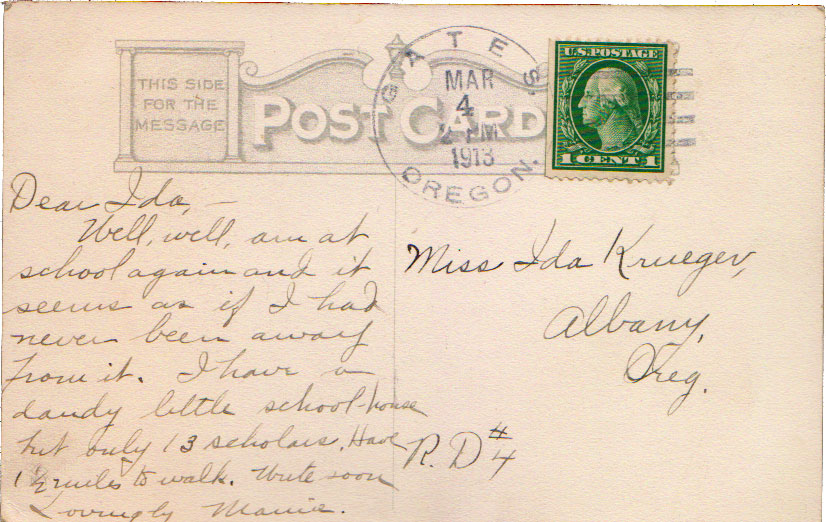 THIS SIDE
FOR THE
MESSAGE
POST CARD
GATES.
MAR
4
2 PM
1913
OREGON.
U.S. POSTAGE
1 CENT 1
Dear Ida, —
Well, well, am at
school again and it
seems as if I had
never been away
from it. I have a
dandy little school-house
but only 13 scholars. Have
1 1/2 miles to walk. Write soon
Lovingly Mamie.
Miss Ida Krueger,
Albany,
Oreg.
R.D. #4